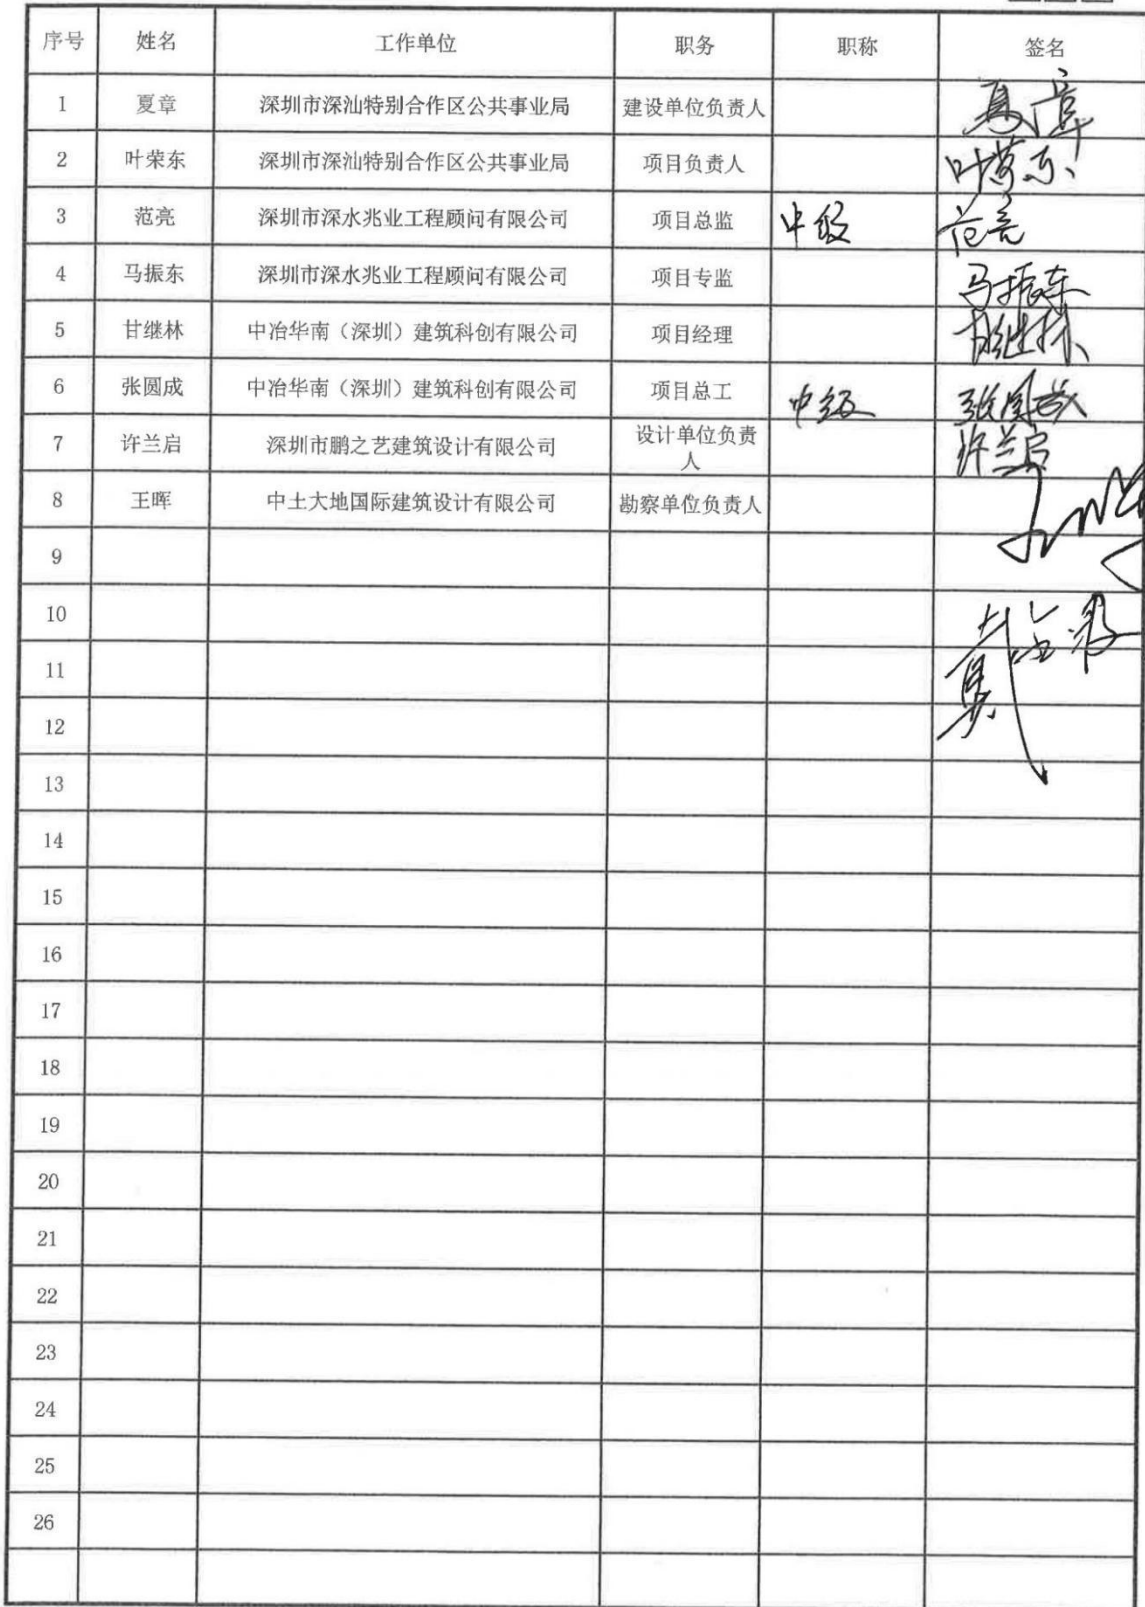 序号 姓名 工作单位 职务 职称 签名
1 夏章 深圳市深汕特别合作区公共事业局 建设单位负责人 夏章
2 叶荣东 深圳市深汕特别合作区公共事业局 项目负责人 叶荣东
3 范亮 深圳市深水兆业工程顾问有限公司 项目总监 中级 范亮
4 马振东 深圳市深水兆业工程顾问有限公司 项目专监 马振东
5 甘继林 中冶华南（深圳）建筑科创有限公司 项目经理 甘继林
6 张圆成 中冶华南（深圳）建筑科创有限公司 项目总工 中级 张圆成
7 许兰启 深圳市鹏之艺建筑设计有限公司 设计单位负责人 许兰启
8 王晖 中土大地国际建筑设计有限公司 勘察单位负责人
9
10
11
12
13
14
15
16
17
18
19
20
21
22
23
24
25
26